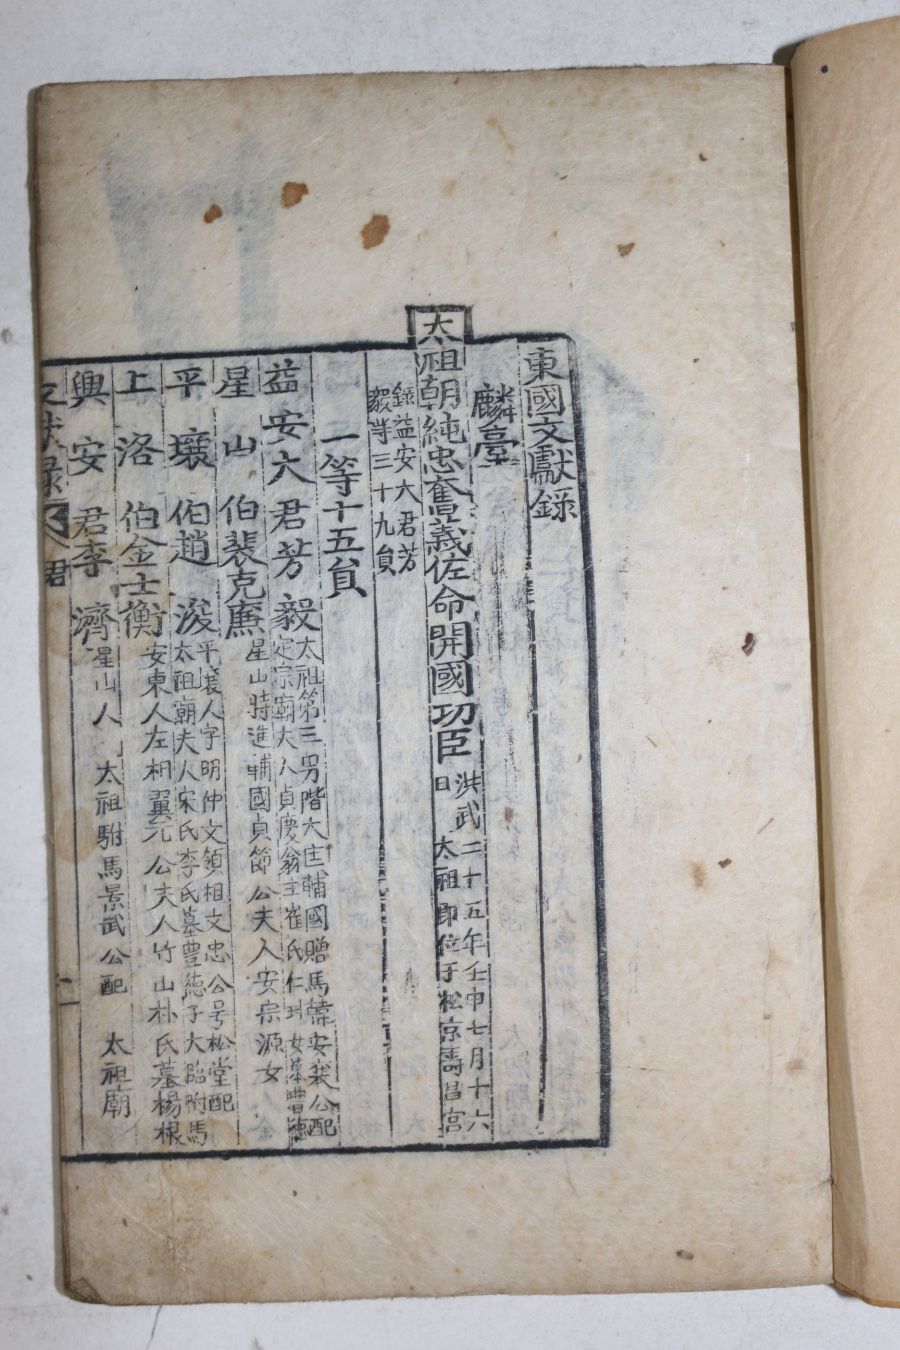 東國文獻錄
麟臺
太祖朝純忠奮義佐命開國功臣 洪武二十五年壬申七月十六日 太祖即位于松京壽昌宮
錄益安大君芳毅等三十九員
一等十五員
益安大君芳毅 太祖第三男階大匡輔國贈馬韓安襄公配定宗廟夫人貞慶翁主崔氏仁 女墓豊德
星山伯裴克廉 星山時進輔國貞節公夫人安宗源女
平壤伯趙浚 平襄人字明仲文領相文忠公号松堂配太祖廟夫人宋氏李氏墓豊德子大臨附馬
上洛伯金士衡 安東人左相翼元公夫人竹山朴氏墓楊根
興安君李濟 星山人 太祖駙馬景武公配 太祖廟
文獻錄
君